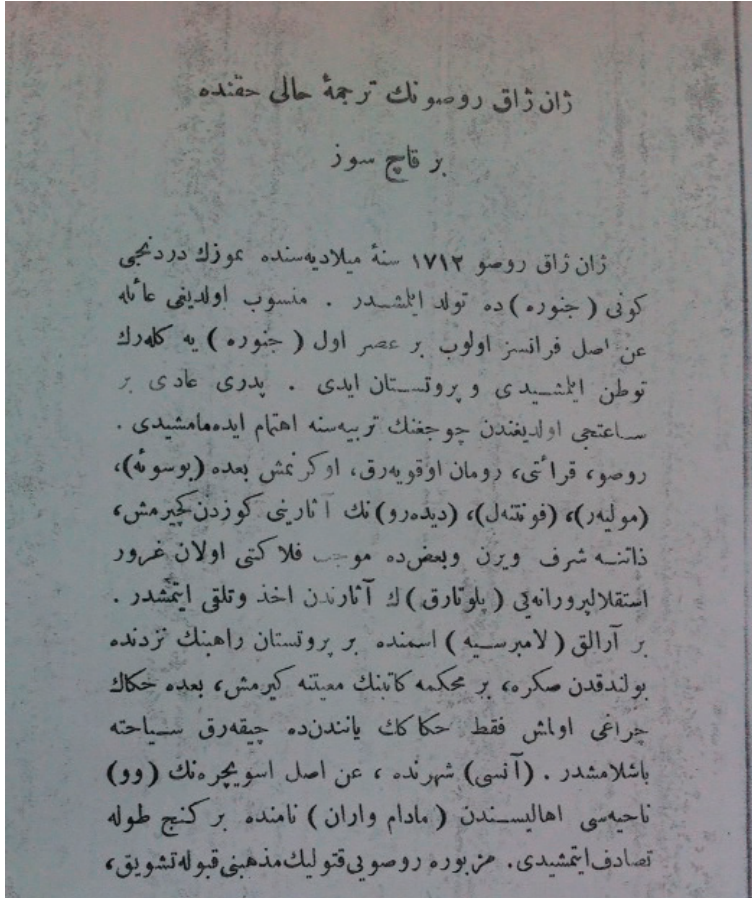 ژان ژاق روصونك ترجمهٔ حالی حقنده
بر قاچ سوز
ژان ژاق روصو ١٧١٢ سنهٔ میلادیه‌سنده تموزك دردنجی
كونی ( جنوره ) ده تولد ایلمشـدر . منسوب اولدیغی عائله
عن اصل فرانسز اولوب بر عصر اول ( جنوره ) یه كله‌رك
توطن ایلمشـیدی و پروتسـتان ایدی . پدری عادی بر
سـاعتجی اولدیغندن چوجغنك تربیه‌سنه اهتمام ایده‌مامشیدی .
روصو، قرائتی، رومان اوقویه‌رق، اوكرنمش بعده (بوسوئه)،
(مولیه‌ر)، (فونتنه‌ل)، (دیده‌رو) نك آثارینی كوزدن كچیرمش،
ذاتنـه شرف ویرن وبعض‌ده موجب فلاكتی اولان غرور
استقلالپرورانه‌یی ( پلوتارق ) ك آثارندن اخذ وتلقی ایتمشدر .
بر آرالق ( لامبرسـیه ) اسمنده بر پروتستان راهبنك نزدنده
بولندقدن صكره، بر محكمه كاتبنك معیتنه كیرمش، بعده حكاك
چراغی اولمش فقط حكاكك یانندن‌ده چیقه‌رق سـیاحته
باشلامشدر . (آنسی) شهرنده ، عن اصل اسویچره‌نك (وو)
ناحیه‌سی اهالیسـندن ( مادام واران ) نامنده بر كنج طوله
تصادف ایتمشیدی. مزبوره روصویی قتولیك مذهبنی قبوله تشویق،